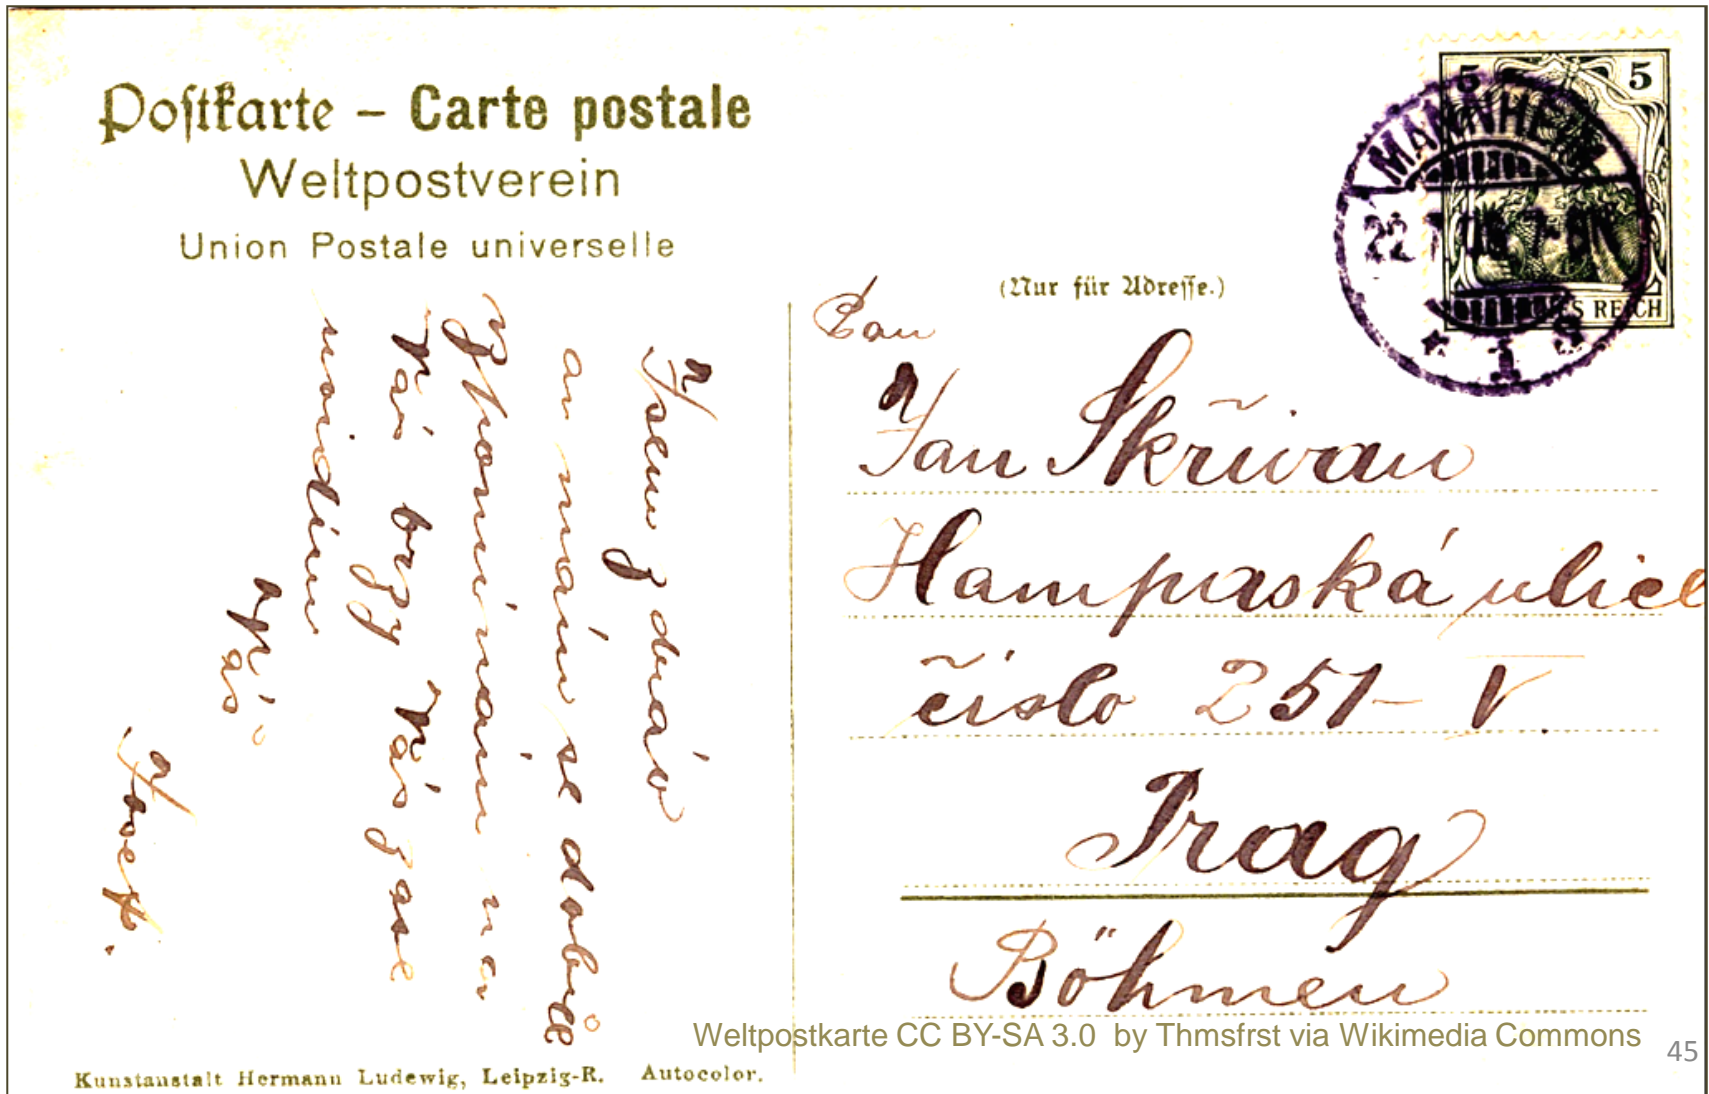 Postkarte – Carte postale
Weltpostverein
Union Postale universelle
5 5
MANNHEIM
22
REICH
* 1 S
(Nur für Adresse.)
Pan
Jan Skřivan
Hampaská ulice
čislo 251– V.
Prag
Böhmen
Jsem zdráv
a mám se dobře
Vzpomínám na
Vás brzy Vás zase
uvidím
Váš
Josef.
Kunstanstalt Hermann Ludewig, Leipzig-R. Autocolor.
Weltpostkarte CC BY-SA 3.0 by Thmsfrst via Wikimedia Commons
45